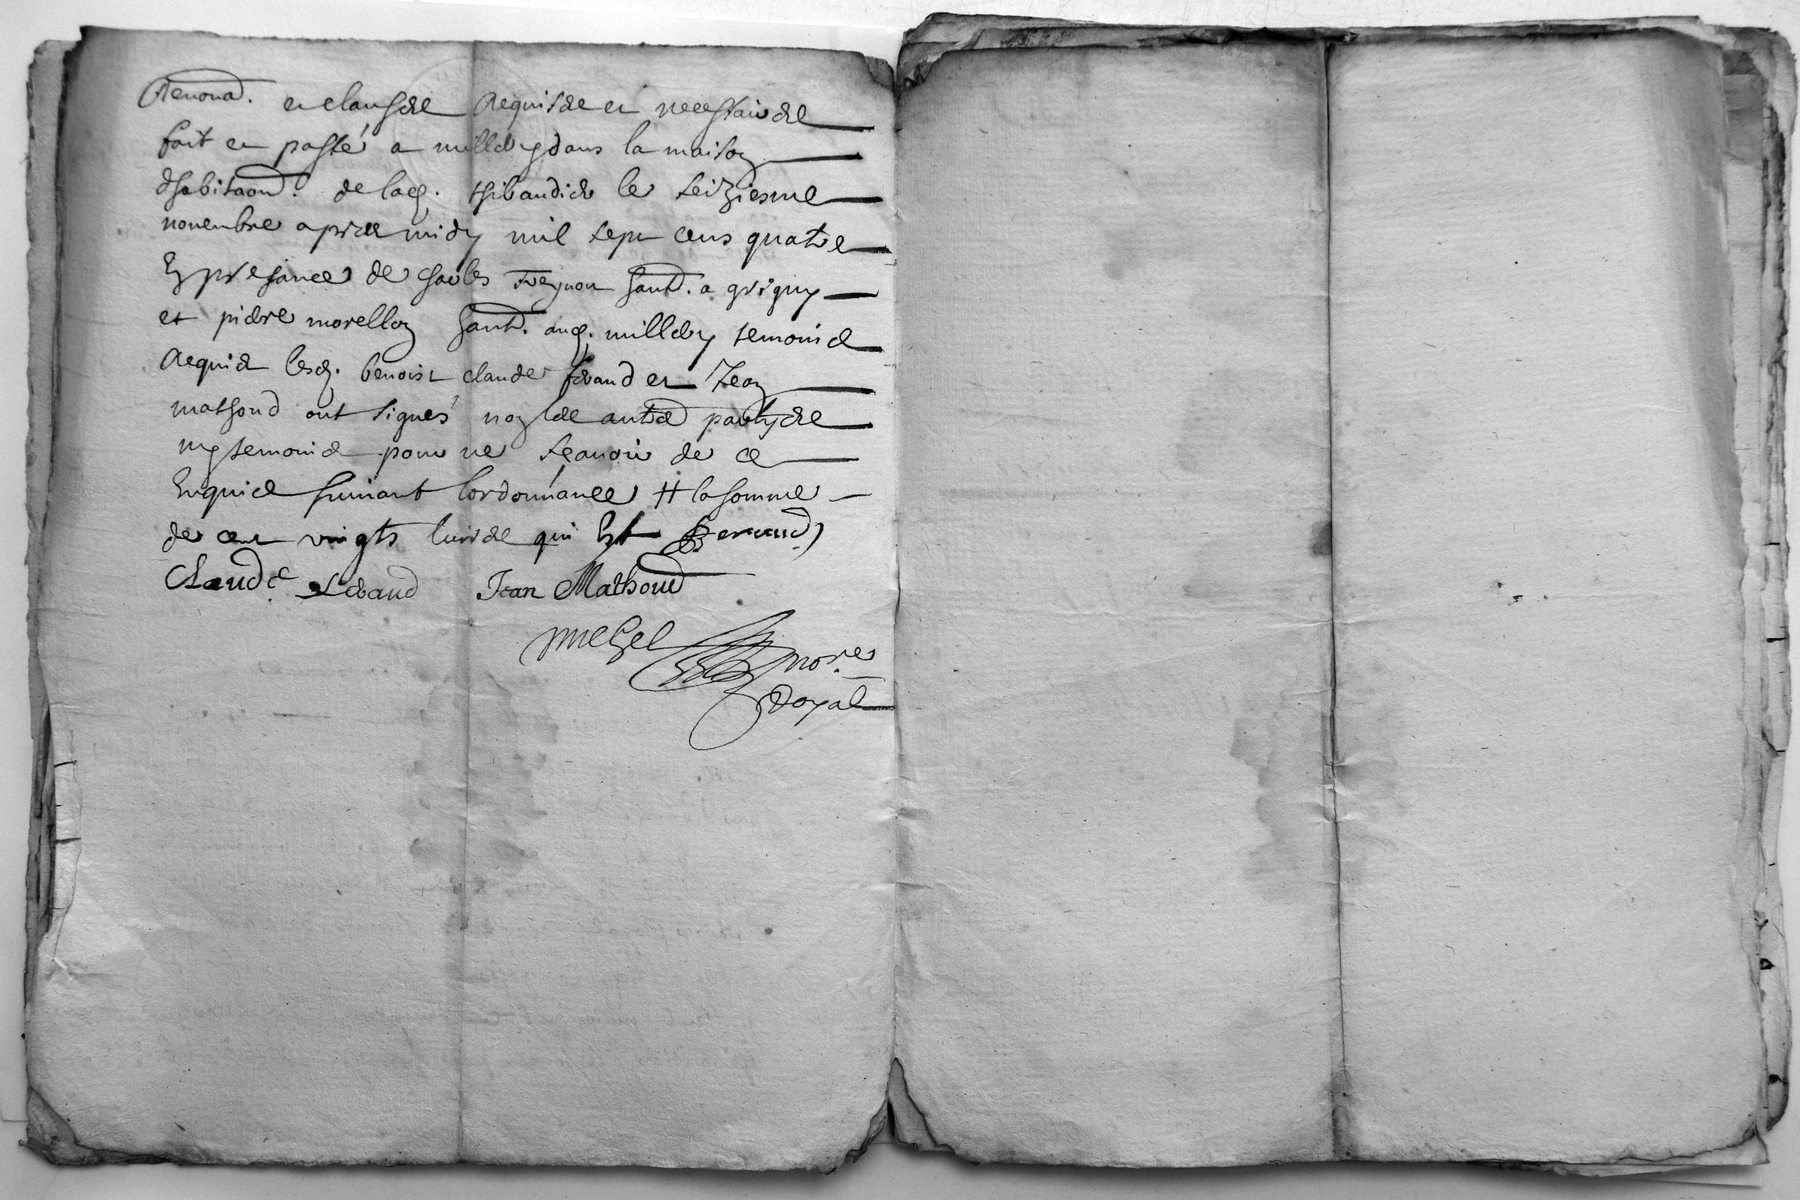 Renond. et clausdes requisdes et necessairdes
fait et passé a millery dans la maison
dhabitaond. de lad. thibaudide le seiziesme
novembre apres midy mil sept cens quatre
En presance de charles freynon habt. a grigny
et pierre morellon habt. aud. millery temoins
requis lesd. benoist claude et Jean
mathoud ont signés non les autres partyes
ny temoins pour ne scavoir de ce
Enquis suivant lordonnance # la somme
de cent vingts livres qui Est Beraud
Claude Jean Mathoud
nore
Royal